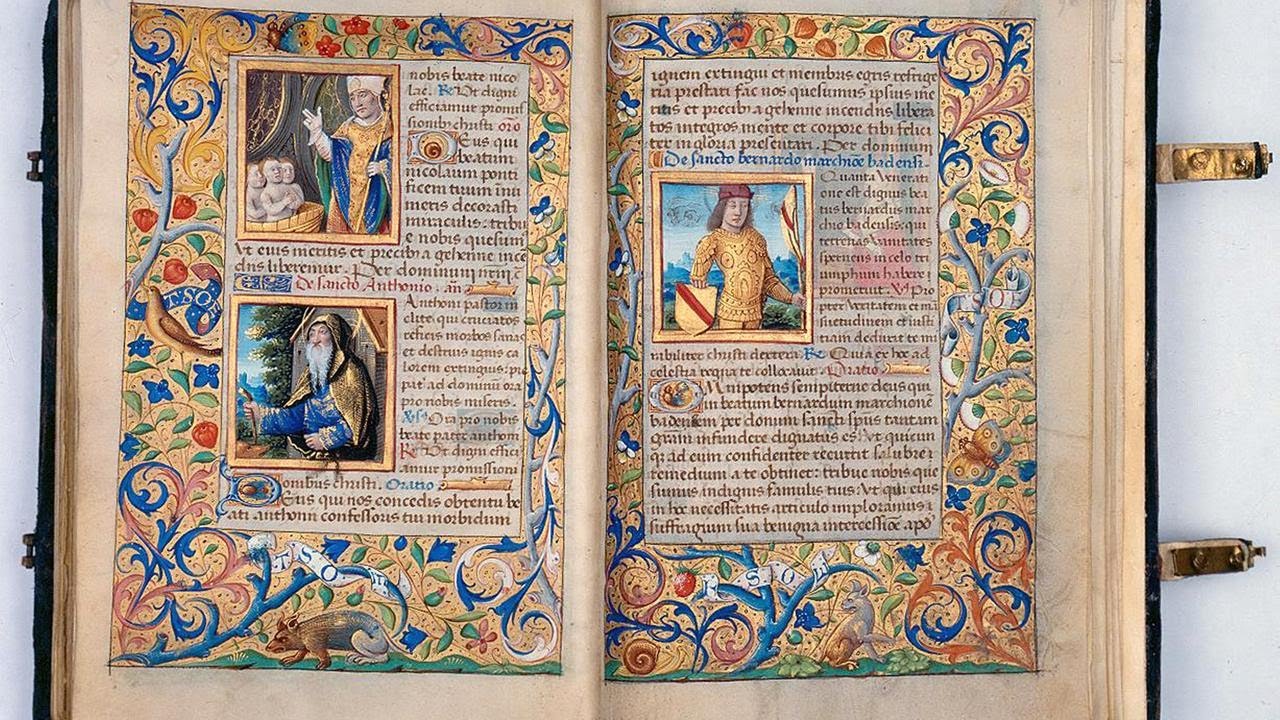 nobis beate nico
lae. Re Ut digni
efficiamur promis
sionib christi oro
Deus qui
beatum
nicolaum ponti
ficem tuum inu
meris decorasti
miraculis. tribu
e nobis quesum
Ut eius meritis et precib a gehenne ince
diis liberemur. Per dominum nrm
De sancto Anthonio. an
Anthoni pastor in
clite qui cruciatos
reficis morbos sanas
et destruis ignis ca
lorem extinguis pie
pat ad dominum ora
pro nobis miseris.
Vs Ora pro nobis
beate pater anthoni
Re Ut digni effici
amur promissioni
onibus christi. Oratio
Deus qui nos concedis obtentu be
ati anthonii confessoris tui morbidum
TSOE
ignem extingui et membris egris refrige
ria prestari fac nos quesumus ipsius me
ritis et precib a gehenne incendiis libera
tos integros mente et corpore tibi felici
ter in gloria presentari. Per dominum
De sancto bernardo marchioe badensi.
Quanta venerati
one est dignus bea
tus bernardus mar
chio badensis qui
terrenas vanitates
spernens in celo tri
umphum habere
promeruit. Vs Pro
pter veritatem et ma
suetudinem et iusti
ciam deducit te mi
rabiliter christi dextera. Re Quia ex hoc ad
celestia regna te collocavit. Oratio
Omnipotens sempiterne deus qui
in beatum bernardum marchione
badensem per donum sancti spus tantam
gram infundere dignatus es Ut quicun
qz ad eum confidenter recurrit salubre
remedium a te obtinet: tribue nobis que
sumus indignis famulis tuis: Ut qui eius
in hoc necessitatis articulo imploramus
suffragium sua benigna intercessioe apd
TSOE